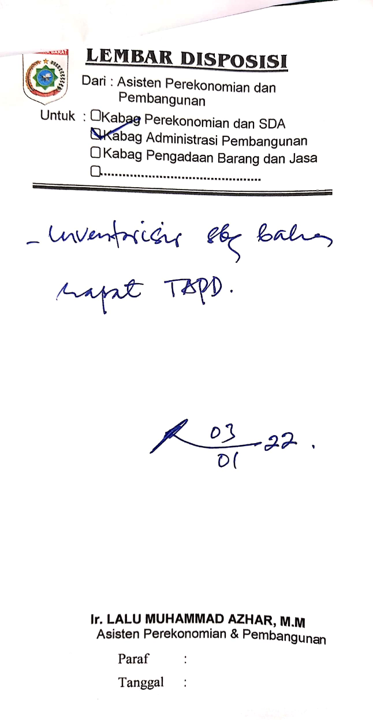 LEMBAR DISPOSISI
Dari : Asisten Perekonomian dan
Pembangunan
Untuk : Kabag Perekonomian dan SDA
Kabag Administrasi Pembangunan
Kabag Pengadaan Barang dan Jasa
............................................
- Inventarisir sbg bahan
rapat TAPD.
03/01-22.
Ir. LALU MUHAMMAD AZHAR, M.M
Asisten Perekonomian & Pembangunan
Paraf :
Tanggal :